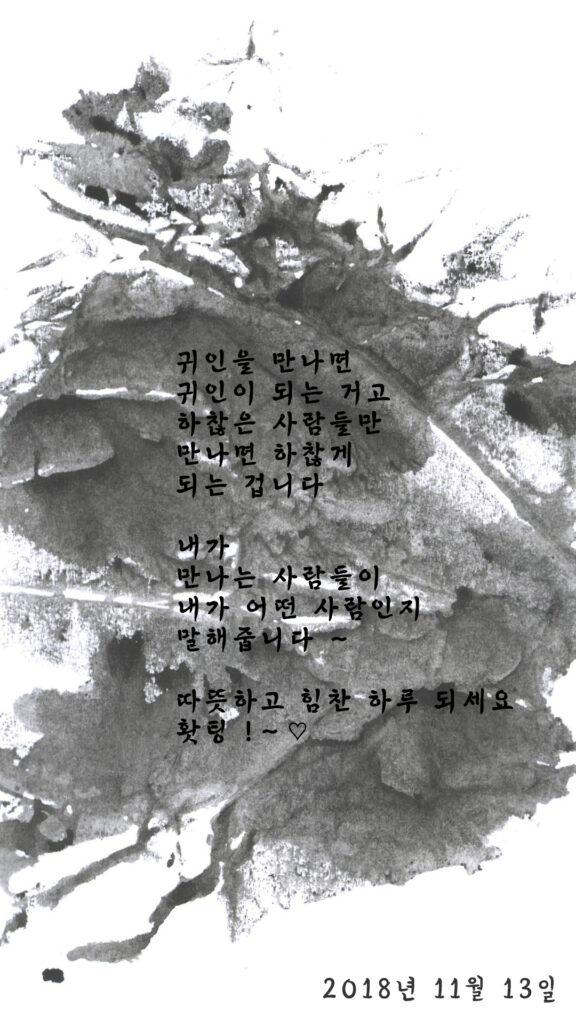 귀인을 만나면
귀인이 되는 거고
하찮은 사람들만
만나면 하찮게
되는 겁니다
내가
만나는 사람들이
내가 어떤 사람인지
말해줍니다 ~
따뜻하고 힘찬 하루 되세요
홧팅 ! ~ ♡
2018년 11월 13일